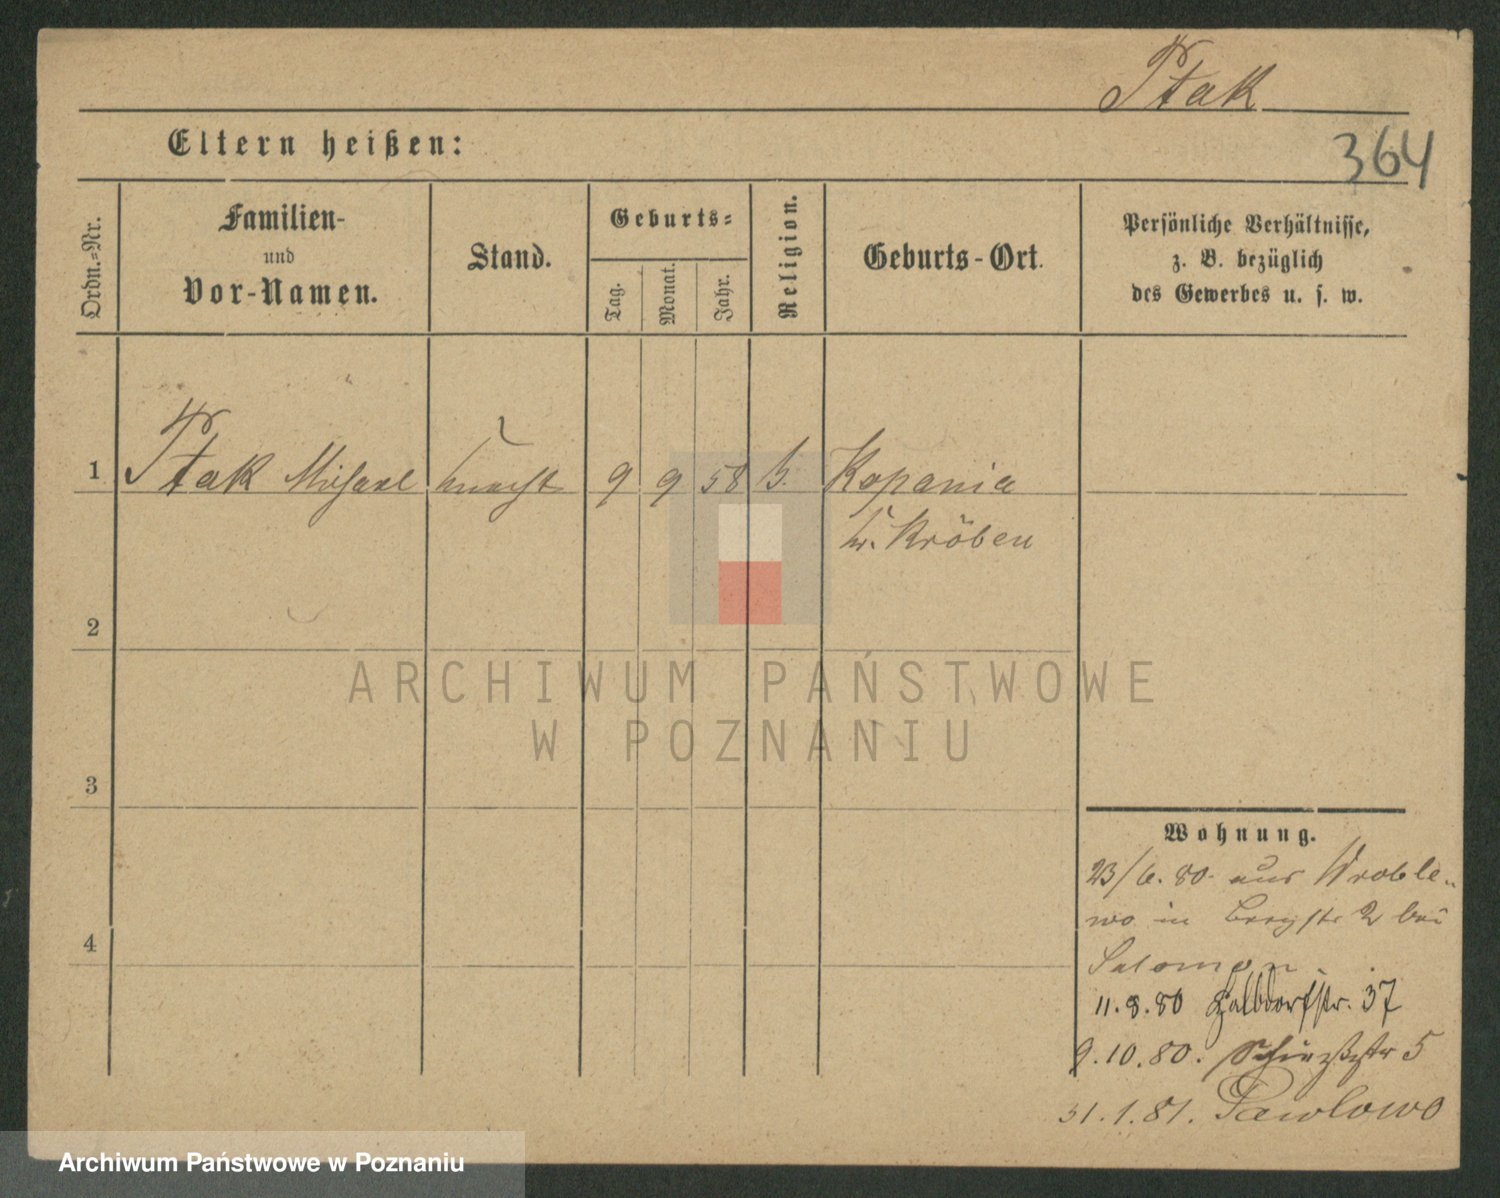 Ptak
364
Eltern heißen:
Ordn.-Nr.
Familien-
und
Vor-Namen.
Stand.
Geburts-
Tag.
Monat.
Jahr.
Religion.
Geburts-Ort.
Persönliche Verhältnisse,
z. B. bezüglich
des Gewerbes u. s. w.
1 Ptak Michael Knecht 9 9 58 k. Kopania
Kr. Kröben
2
3
4
Wohnung.
23/6. 80. aus Wroble-
wo in Bergstr 2 bei
Salomon
11.8.80 Halbdorfstr. 37
9.10.80. Schießstr 5
31.1.81. Pawlowo
ARCHIWUM PAŃSTWOWE
W POZNANIU
Archiwum Państwowe w Poznaniu